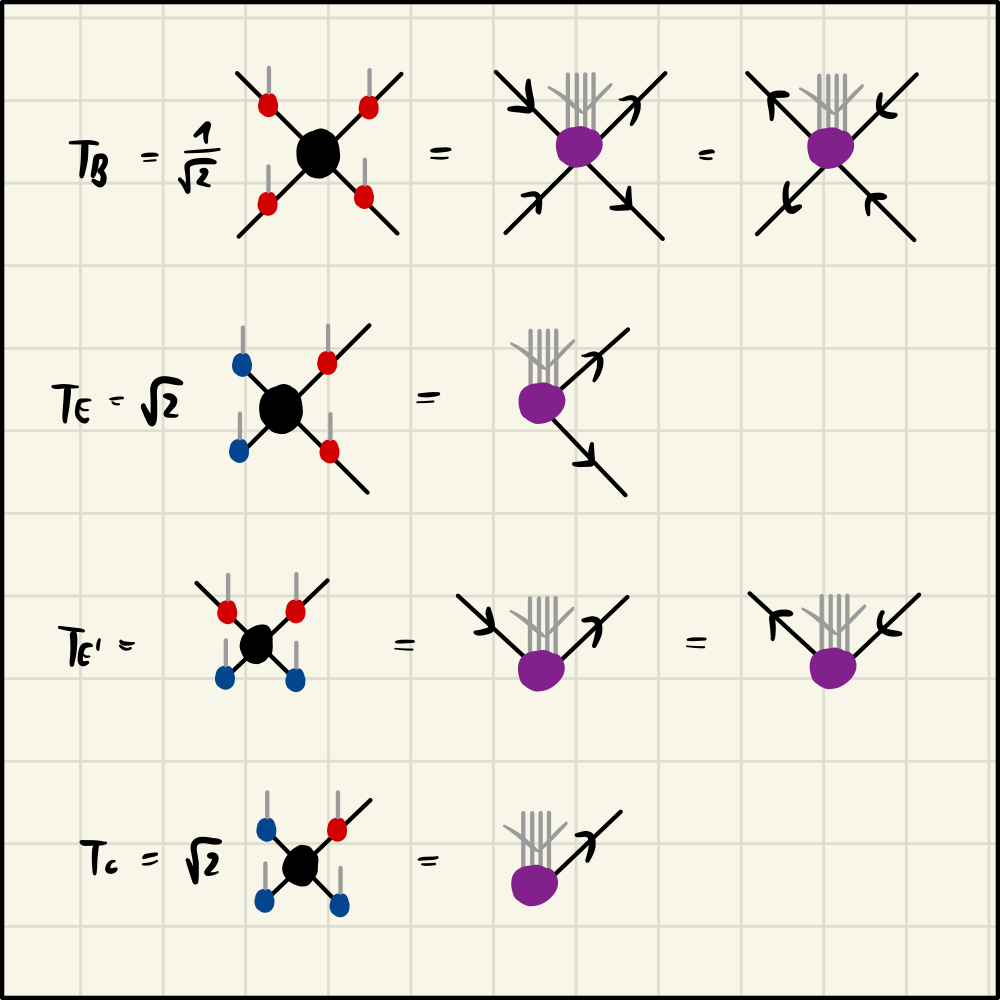 T_B = 1/√2 = =
T_E = √2 =
T_E' = = =
T_C = √2 =